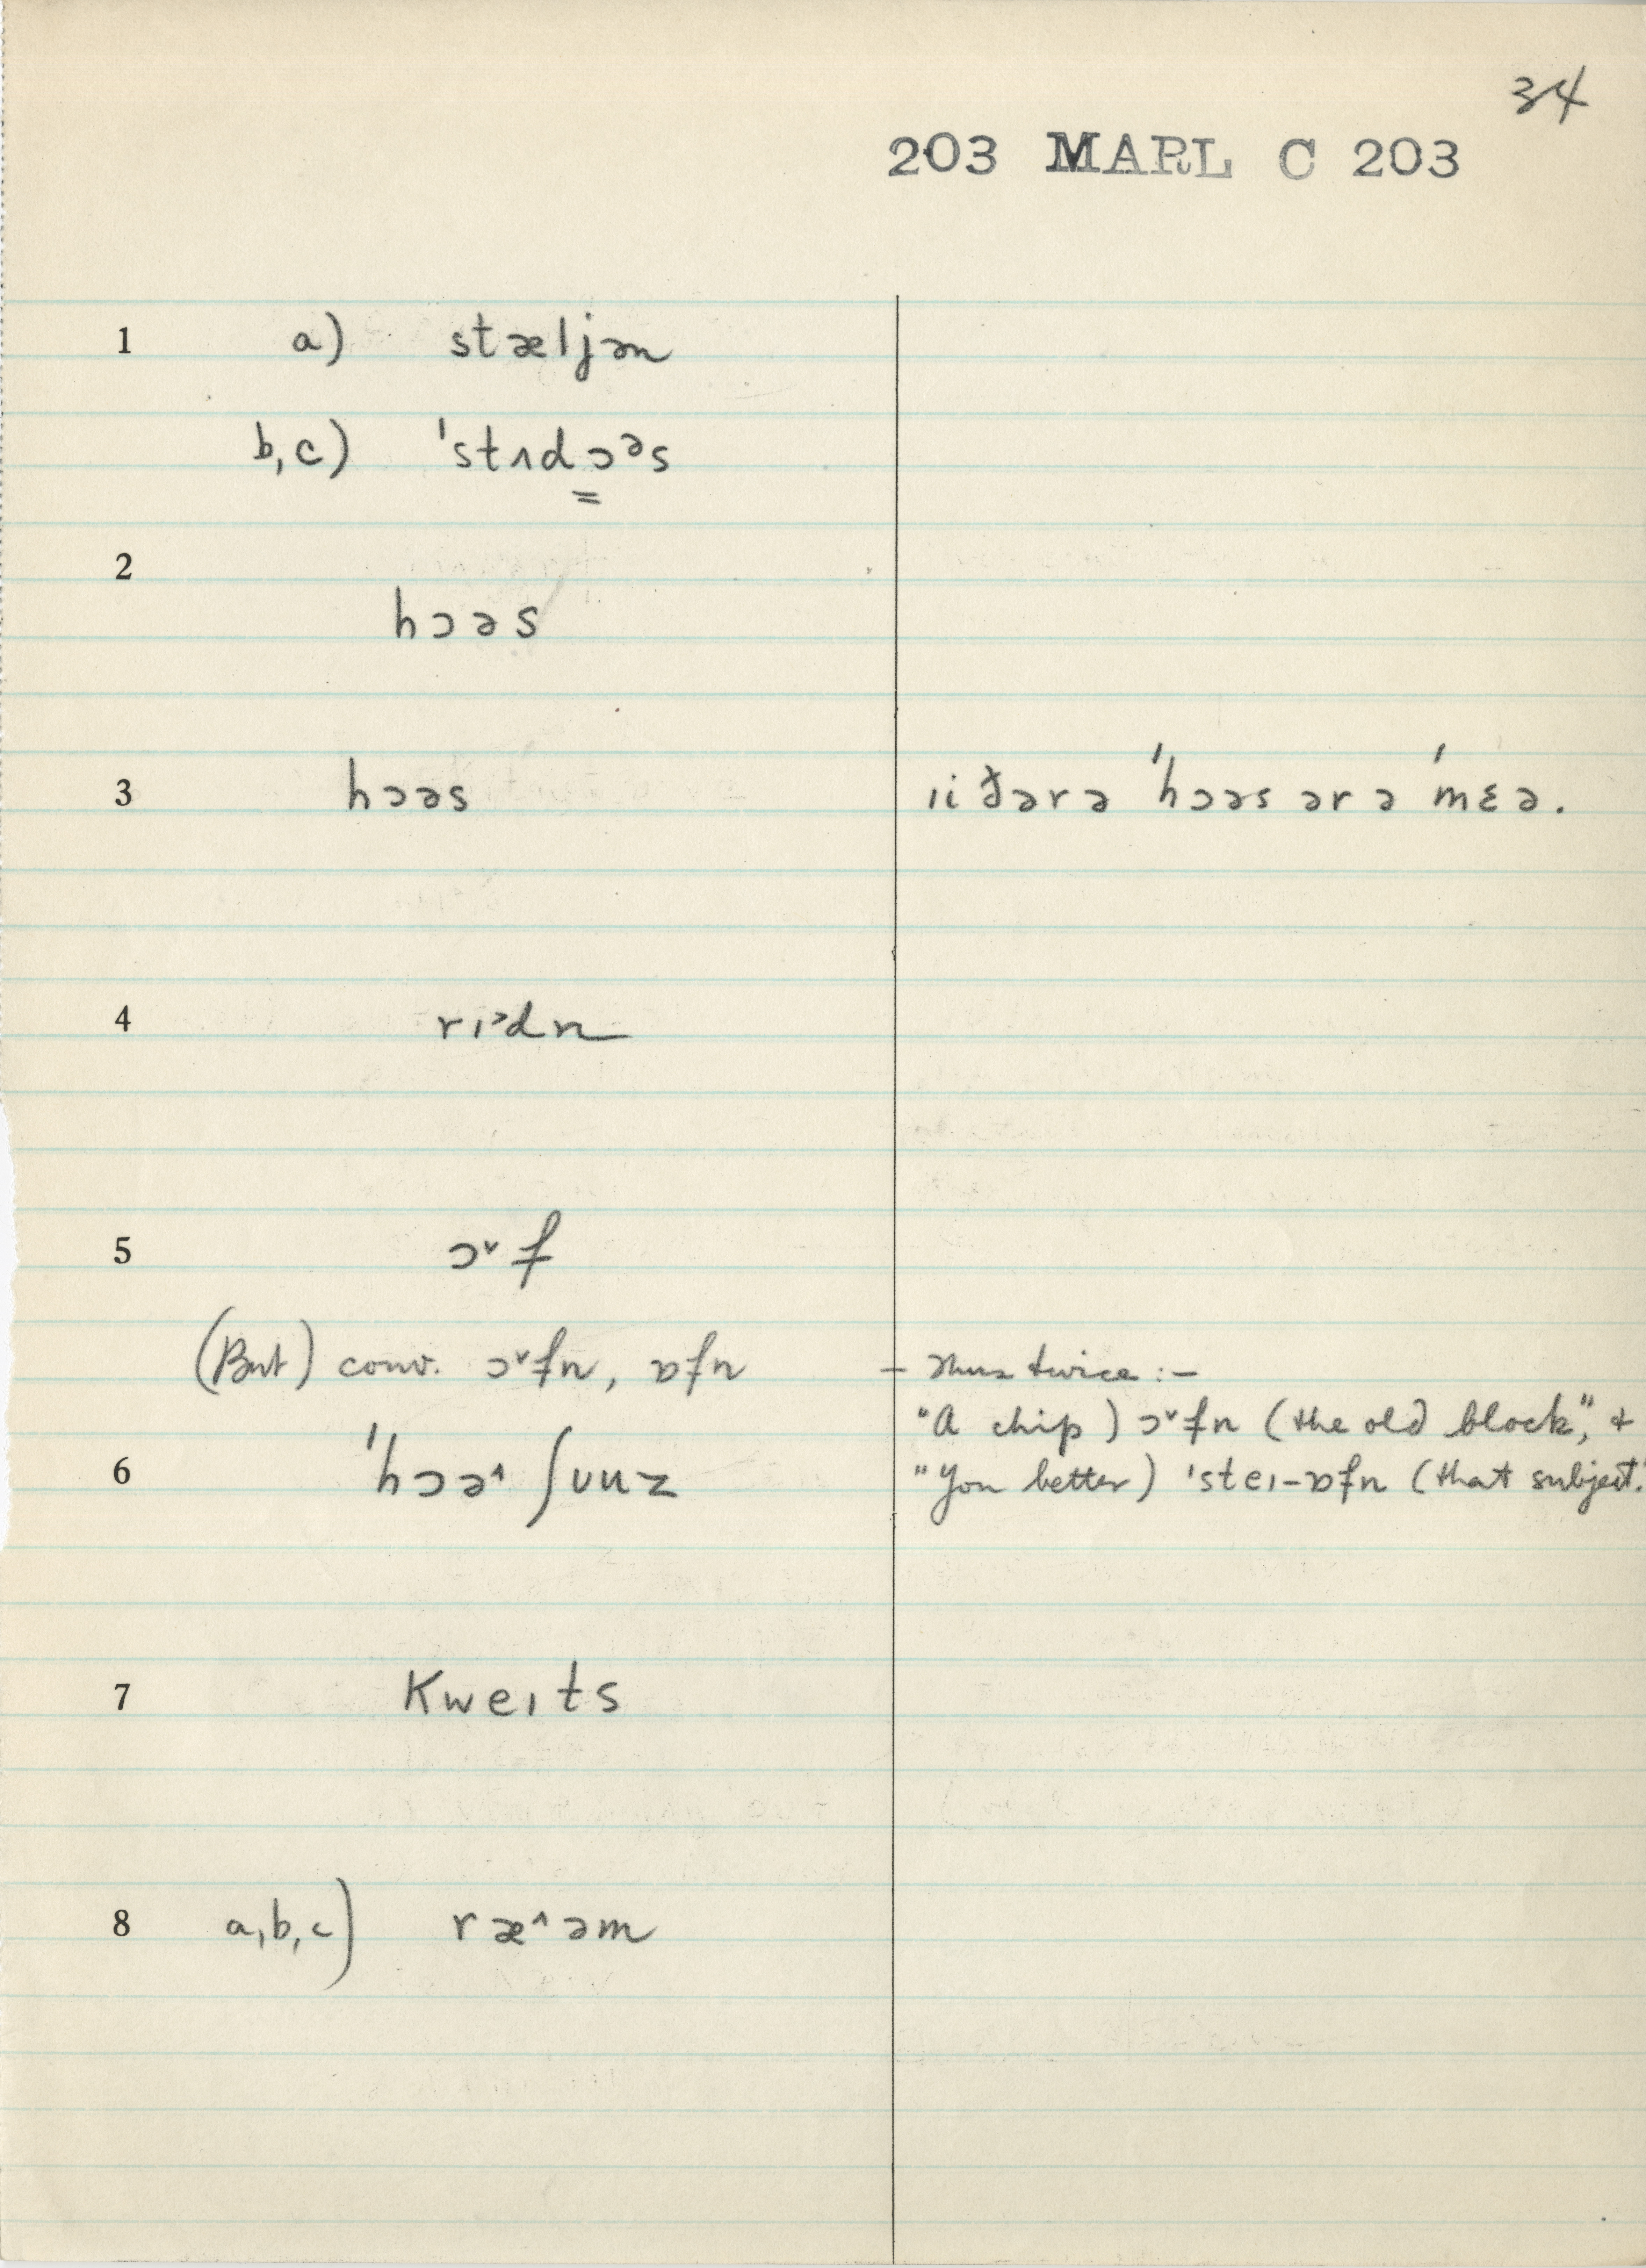 34
203 MARL C 203
1 a) stæljən
b,c) ˈstʌdɔᵊs
=
2
hɔəs
3 hɔəs ɪiðərə ˈhɔəs ərə ˈmɛə.
4 rɪᵊdn
5 ɔ˅f
(But) conv. ɔ˅fn, ɒfn – thus twice :–
"A chip) ɔ˅fn (the old block", +
6 ˈhɔə˄ ʃuuz "You better) ˈsteɪ-ɒfn (that subject."
7 kweɪts
8 a,b,c) ræ˄əm